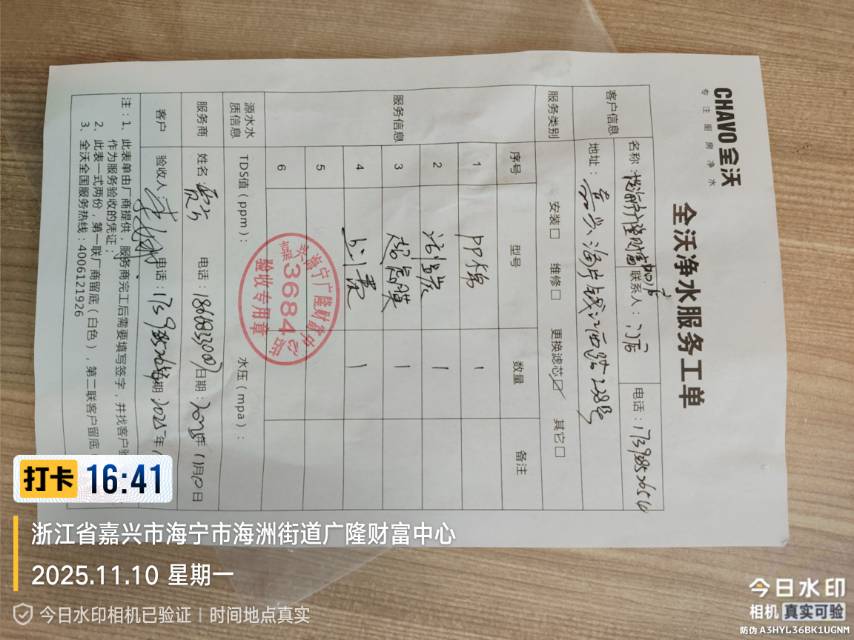 CHAVO全沃
专注厨房净水
全沃净水服务工单
客户信息
名称：
联系人：门店
电话：
地址：嘉兴海宁钱江西路228号
服务类别
安装□ 维修□ 更换滤芯☑ 其它□
服务信息
序号 型号 数量 备注
1 PP棉 1
2 1
3 超滤膜 1
4 上门费 1
5
6
源水水质信息
TDS值（ppm）： 水压（mpa）：
服务商 姓名： 电话： 日期：2025年11月10日
客户 验收人： 电话： 日期：2025年
注：1、此表单由厂商提供，服务商完工后需要填写签字，并找客户验
作为服务验收的凭证；
2、此表一式两份，第一联厂商留底（白色），第二联客户留底
3、全沃全国服务热线：4006121926
海宁广隆财富中
36842
验收专用章
打卡 16:41
浙江省嘉兴市海宁市海洲街道广隆财富中心
2025.11.10 星期一
今日水印相机已验证 | 时间地点真实
今日水印
相机 真实可验
防伪 A3HYL36BK1UGNM